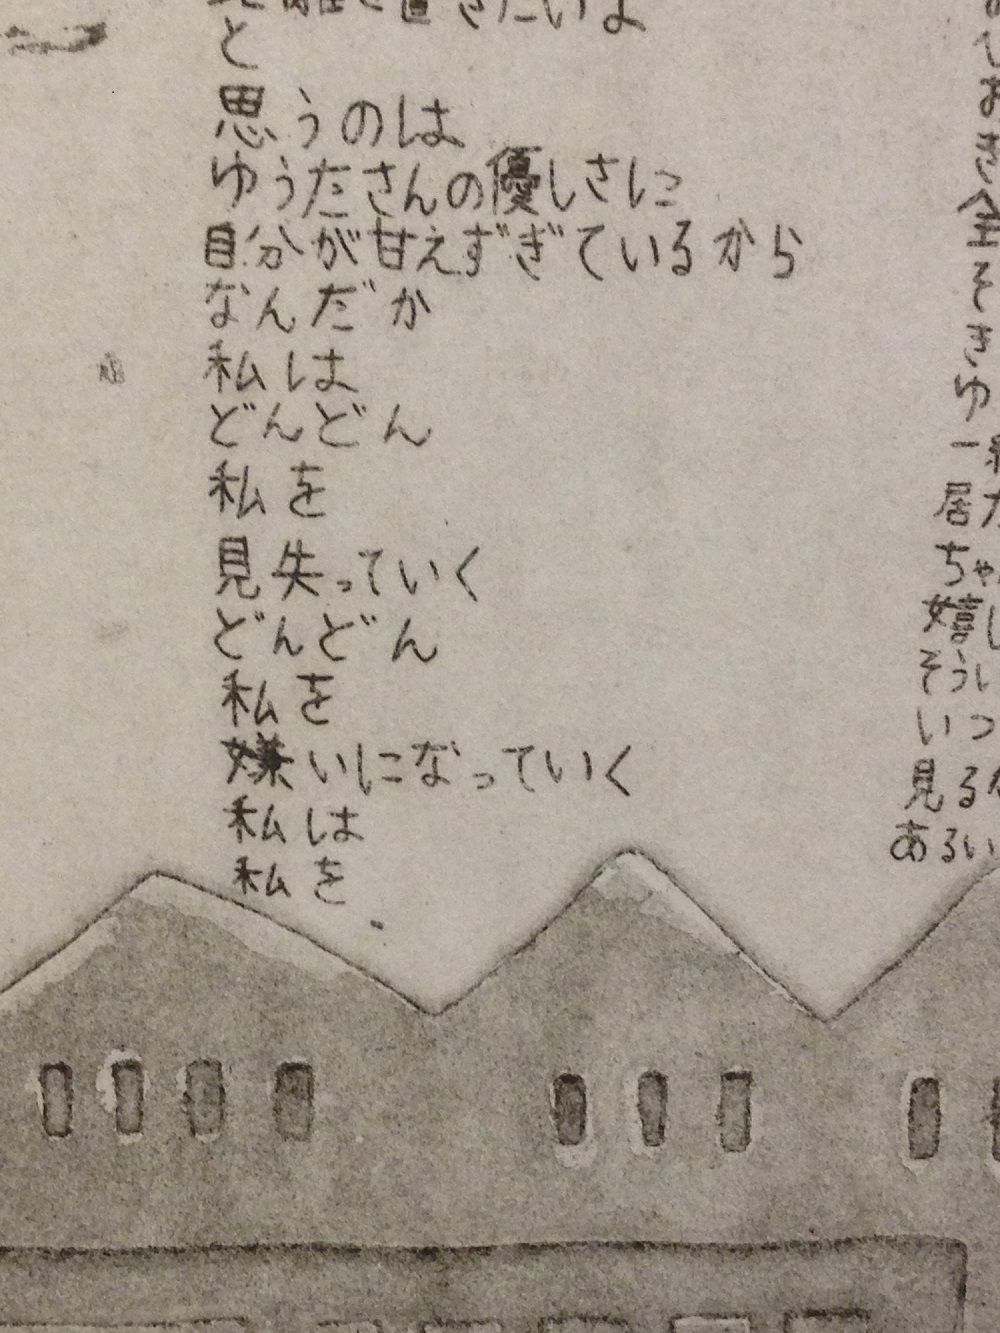 と
思うのは
ゆうたさんの優しさに
自分が甘えずぎているから
なんだか
私は
どんどん
私を
見失っていく
どんどん
私を
嫌いになっていく
私は
私を
お
し
お
き
全
そ
き
ゆ
一
居
ちゃ
嬉し
そうい
いつ
見る
あるい